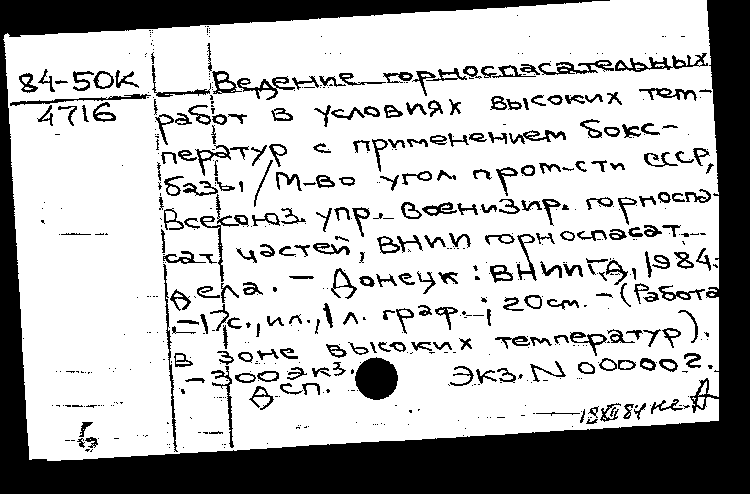 84-50К
4716
Ведение горноспасательных
работ в условиях высоких тем-
ператур с применением бокс-
базы / М-во угол. пром-сти СССР,
Всесоюз. упр. военизир. горноспа-
сат. частей, ВНИИ горноспасат.
дела. - Донецк : ВНИИГД, 1984.
.-17с., ил., 1 л. граф. ; 20см. - (Работа
в зоне высоких температур).
.-300экз. Экз. N 000002.
Дсп.
6